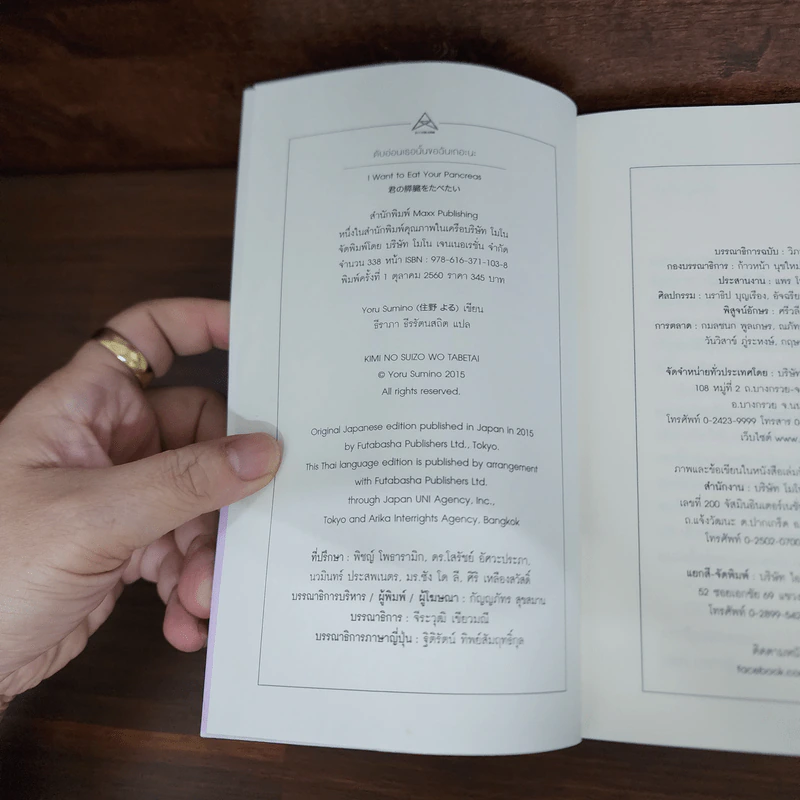 ตับอ่อนเธอนั้นขอฉันเถอะนะ
I Want to Eat Your Pancreas
君の膵臓をたべたい
สำนักพิมพ์ Maxx Publishing
หนึ่งในสำนักพิมพ์คุณภาพในเครือบริษัท โมโน
จัดพิมพ์โดย บริษัท โมโน เจนเนอเรชั่น จำกัด
จำนวน 338 หน้า ISBN : 978-616-371-103-8
พิมพ์ครั้งที่ 1 ตุลาคม 2560 ราคา 345 บาท
Yoru Sumino (住野 よる) เขียน
ธีราภา ธีรรัตนสถิต แปล
KIMI NO SUIZO WO TABETAI
© Yoru Sumino 2015
All rights reserved.
Original Japanese edition published in Japan in 2015
by Futabasha Publishers Ltd., Tokyo.
This Thai language edition is published by arrangement
with Futabasha Publishers Ltd.
through Japan UNI Agency, Inc.,
Tokyo and Arika Interrights Agency, Bangkok
ที่ปรึกษา : พิชญ์ โพธารามิก, ดร.โสรัชย์ อัศวะประภา,
นวมินทร์ ประสพเนตร, มร.ซัง โด ลี, ศิริ เหลืองสวัสดิ์
บรรณาธิการบริหาร / ผู้พิมพ์ / ผู้โฆษณา : กัญญภัทร สุขสมาน
บรรณาธิการ : จิระวุฒิ เขียวมณี
บรรณาธิการภาษาญี่ปุ่น : ฐิติรัตน์ ทิพย์สัมฤทธิ์กุล
บรรณาธิการฉบับ :
กองบรรณาธิการ : ก้าวหน้า
ประสานงาน : แพร
ศิลปกรรม : นราธิป บุญเรือง,
พิสูจน์อักษร :
การตลาด : กมลชนก พูลเกษร,
วันวิสาข์ ภู่ระหงษ์,
จัดจำหน่ายทั่วประเทศโดย :
108 หมู่ที่ 2 ถ.บางกรวย-
อ.บางกรวย
โทรศัพท์ 0-2423-9999 โทรสาร
เว็บไซต์ www.
ภาพและข้อเขียนในหนังสือเล่ม
สำนักงาน : บริษัท
เลขที่ 200 จัสมินอินเตอร์เนชั่
ถ.แจ้งวัฒนะ ต.ปากเกร็ด
โทรศัพท์ 0-2502-0700
แยกสี-จัดพิมพ์ : บริษัท
52 ซอยเอกชัย 69
โทรศัพท์
facebook.co